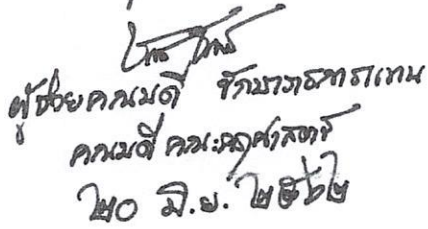 ผู้ช่วยคณบดี รักษาราชการแทน
คณบดีคณะครุศาสตร์
๒๐ มิ.ย. ๒๕๖๒